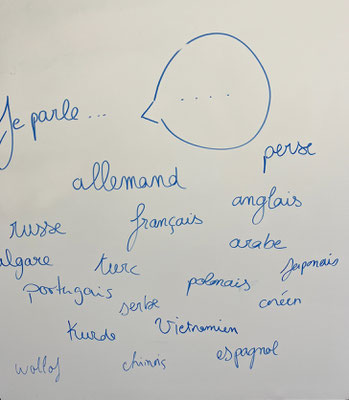 Je parle ...
....
perse
allemand
anglais
russe
français
arabe
algare
turc
polonais
Japonais
portugais
serbe
coréen
Kurde
Vietnamien
wollof
chinois
espagnol